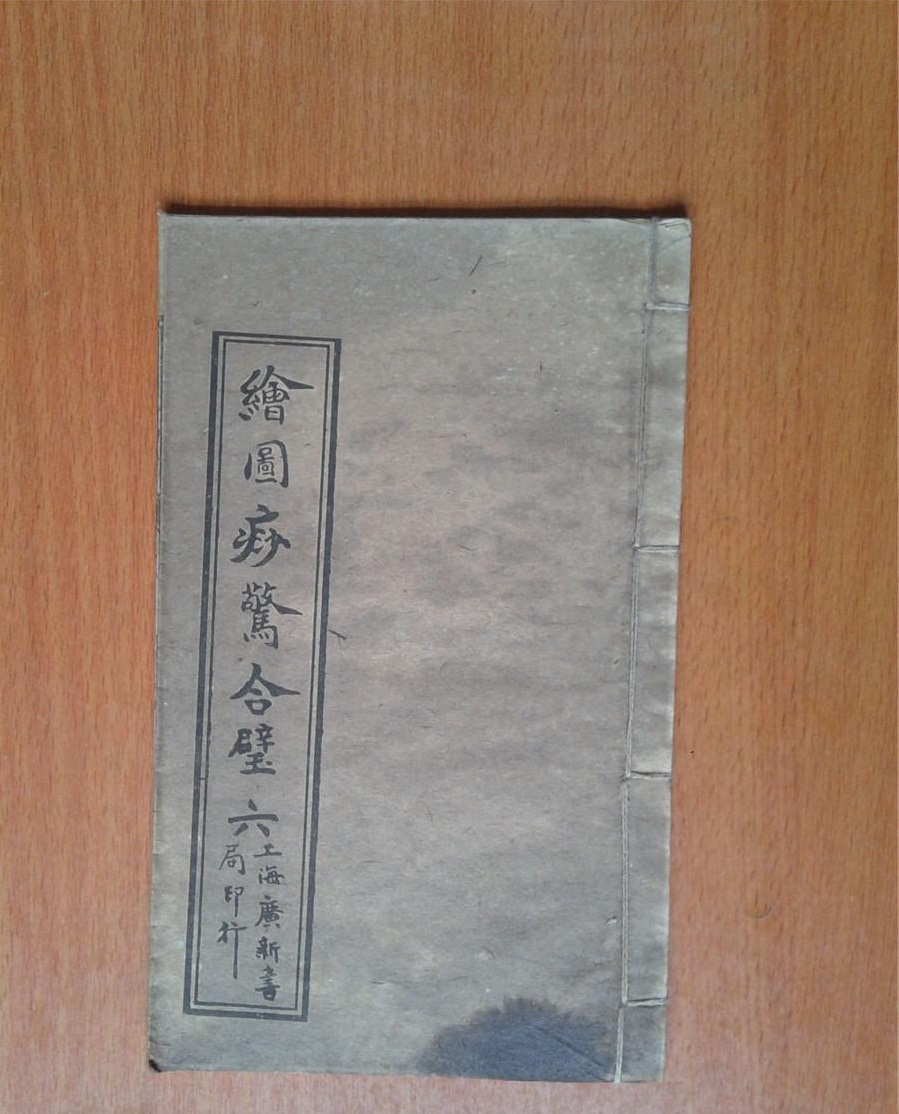 繪圖痧驚合璧 六
上海廣新書
局印行